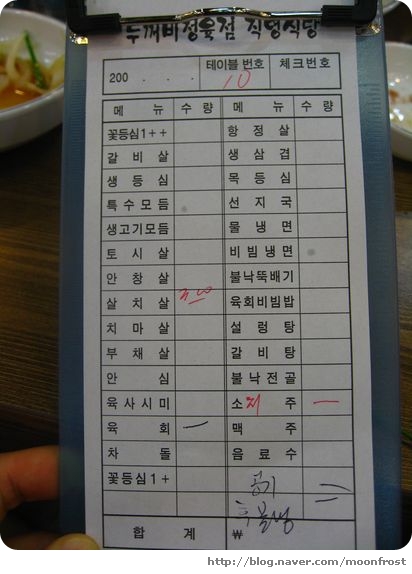 두꺼비정육점 직영식당
200 . . . 테이블 번호 10 체크번호
메 뉴 수 량 메 뉴 수 량
꽃등심1++ 항 정 살
갈 비 살 생 삼 겹
생 등 심 목 등 심
특 수 모 듬 선 지 국
생고기모듬 물 냉 면
토 시 살 비 빔 냉 면
안 창 살 불낙뚝배기
살 치 살 육회비빔밥
치 마 살 설 렁 탕
부 채 살 갈 비 탕
안 심 불 낙 전 골
육 사 시 미 소 주 一
육 회 一 맥 주
차 돌 음 료 수
꽃등심1+ 공기 二
합 계 ₩
http://blog.naver.com/moonfrost